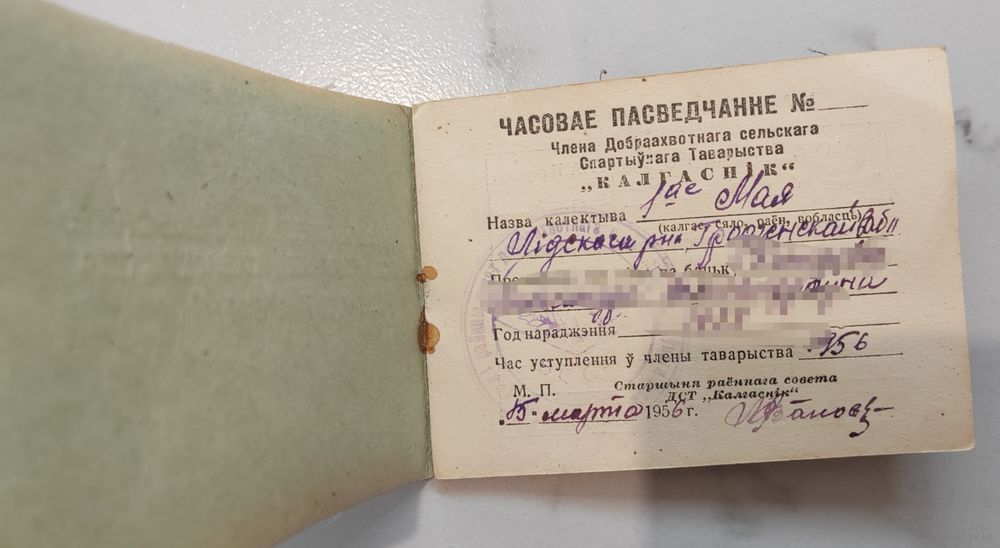 ЧАСОВАЕ ПАСВЕДЧАННЕ №
Члена Добраахвотнага сельскага
Спартыўнага Таварыства
„КАЛГАСНІК“
Назва калектыва 1ае Мая
(калгас, сяло, раён, вобласць)
Лідского р-на Гродненской обл
бацьк.
Год нараджэння
Час уступлення ў члены таварыства 1956
М. П. Старшыня раённага совета
ДСТ „Калгаснік“
15 марта 1956 г.